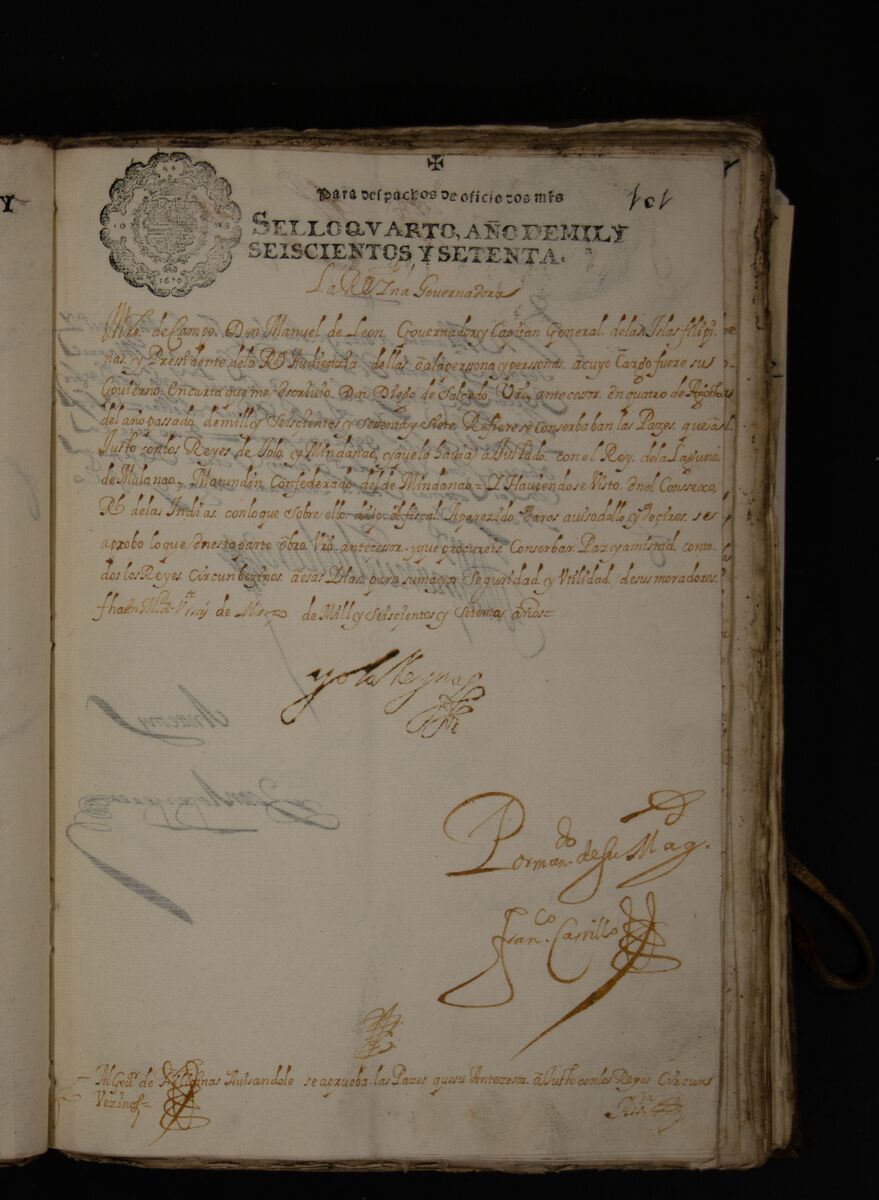 ✠
Para despachos de oficio dos mrs
101
SELLO QVARTO, AÑO DE MIL Y
SEISCIENTOS Y SETENTA.
1670
La Reyna Governadora
Mro. de Campo. Don Manuel de Leon. Governador y Capitan General. de las Islas filipi
nas. y Pressidente de la Rl Audienzia dellas ò a la persona y personas. a cuyo Cargo fuere su
Govierno. En carta que me. escrivio. Don Diego de Salcedo, Vro. antecesor. en quatro de Agosto
del año passado. de mill y Seiscientos y Sesenta y Siete. Refiere se Conserbaban las Pazes que
Justo con los Reyes de Jolo. y Mindanao, y que lo havia aJustado. con el Rey. de la Laguna.
de Malanao, Matundin Confederado del de Mindanao = Y Haviendose Visto. en el Conssexo.
Rl. de las Indias. con lo que sobre ello. dijo el fiscal. A parezido. Daros aviso dello y deciros. se os
aprobo lo que en esta parte obro Vro. antecessor. y que procureis. Conserbar. Paz y amistad con to
dos los Reyes Circunbezinos a esas Islas. para su mayor Seguridad. y Vtilidad de sus moradores.
fha en Md. de Marzo de Mill y Seiscientos y Setenta años =
yo la Reyna
Por mando. de Su Mag.
Franco. Carrillo
Al Govr. de Filipinas Avisandole se aprueba. las Pazes que su Antezesor. aJusto con los Reyes Circuns
Vezinos =